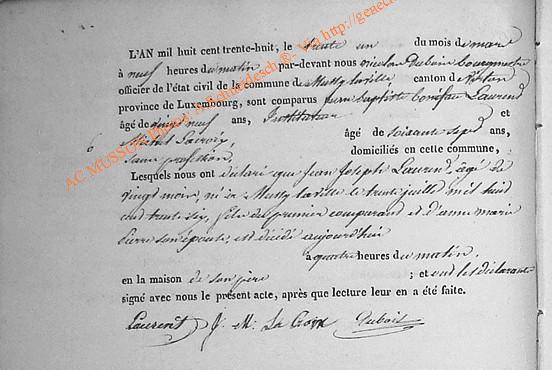 L'AN mil huit cent trente-huit, le trente un du mois de mars
à neuf heures du matin par-devant nous nicolas Dubois bourgmestre
officier de l'état civil de la commune de Mussy la ville canton de Virton
province de Luxembourg, sont comparus jean baptiste Laurent
âgé de vingt neuf ans, Instituteur et
Michel Lacroix, âgé de soixante sept ans,
Sans profession, domiciliés en cette commune,
Lesquels nous ont déclaré que Jean Joseph Laurent, âgé de
vingt mois, né à Mussy la ville le trente juillet mil huit
cent trente six, fils du premier comparant et d'anne marie
pierre son épouse, est décédé aujourd'hui
à quatre heures du matin,
en la maison de son père ; et ont les déclarants
signé avec nous le présent acte, après que lecture leur en a été faite.
Laurent J: M: La Croix Dubois
AC MUSSON Edition A Schneidesch ®- Via http://genedec